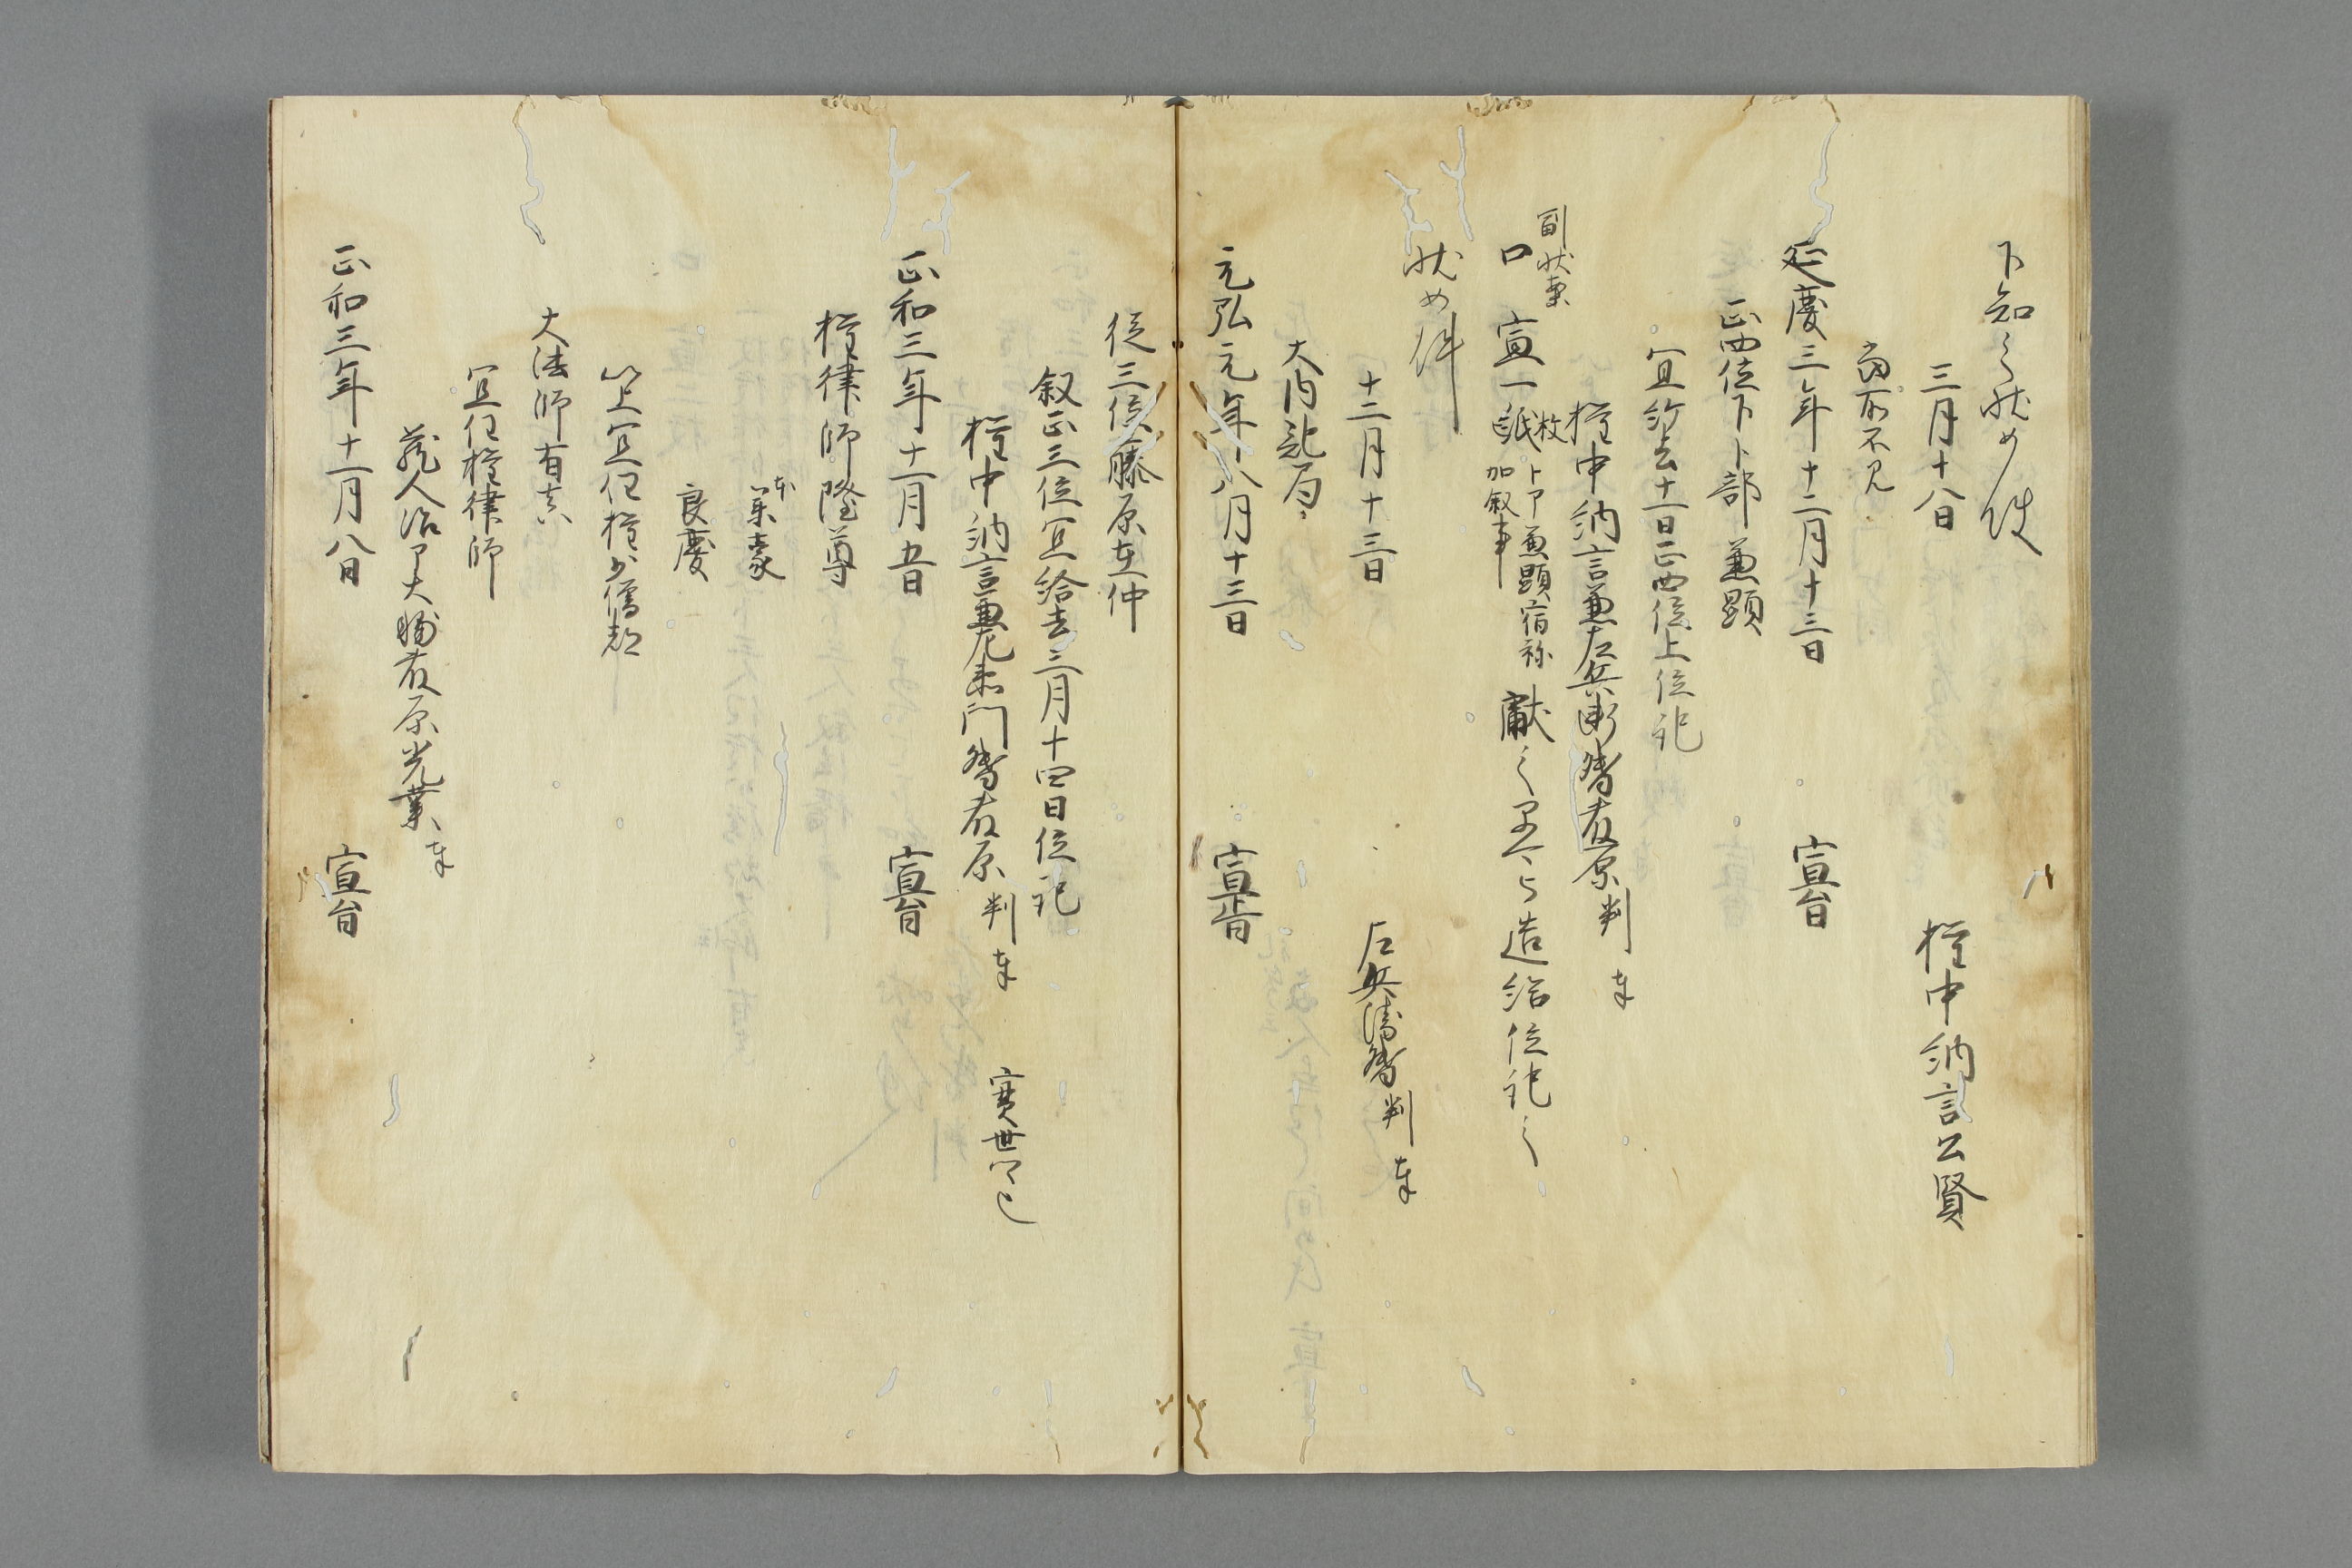 下知之状如件
三月十八日　権中納言公賢
宛所不見
延慶三年十二月十三日　宣旨
正四位下卜部兼顕
宜給去十一日正四位上位記
権中納言兼左兵衛督藤原判奉
副状案
口宣一紙枚卜部兼顕宿祢加叙事献之早可造給位記之
状如件
十二月十三日　左兵衛督判奉
大内記局
元弘元年八月十三日　宣旨
従三位藤原在仲
叙正三位宜給去三月十四日位記
権中納言兼左衛門督藤原判奉　実世卿也
正和三年十一月五日　宣旨
権律師隆尊
業豪
良慶
以上宜任権少僧都
大法師有真
宜任権律師
蔵人治部大輔藤原光業奉
正和三年十一月八日　宣旨